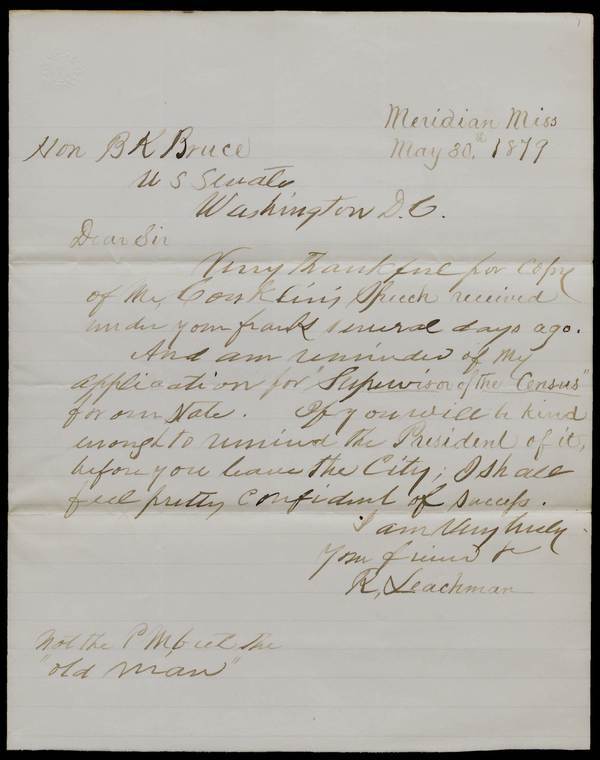 Meridian Miss
May 30th 1879
Hon B K Bruce
U S Senate
Washington D.C.
Dear Sir
Very thankful for copy
of Mr Conklins Speech received
under your frank several days ago.
And am reminded of my
application for "Supervisor of the Census"
for our State. If you will be kind
enough to remind the President of it,
before you leave the City; I shall
feel pretty confident of success.
I am Very truly
Your friend &c
R, Leachman
Not the P M, but the
"old man"